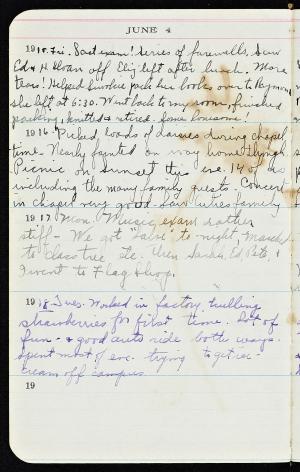 JUNE 4
1915. Fri. Last exam! Series of farewells. Saw
Ed & H. Sloan off. Eliz left after lunch. More
tears! Helped pack her books over to Raymond
she left at 6:30. Went back to my room, finished
packing, knitted & retired. Some lonesome!
1916 Picked loads of daisies during chapel
time. Nearly fainted on way home though.
Picnic on Sunset this eve. 14 of us
including the many family guests. Concert
in chapel very good. Saw family
1917 Mon. Music exam rather
stiff - We got "false" to night. Marched
to class tree etc. Then Sarah, Ed, Pete, &
I went to Flag Shop.
1918 Tues. Worked in factory hulling
strawberries for first time. Lots of
fun - & good auto ride both ways.
Spent most of eve. trying to get ice-
cream off campus.
19